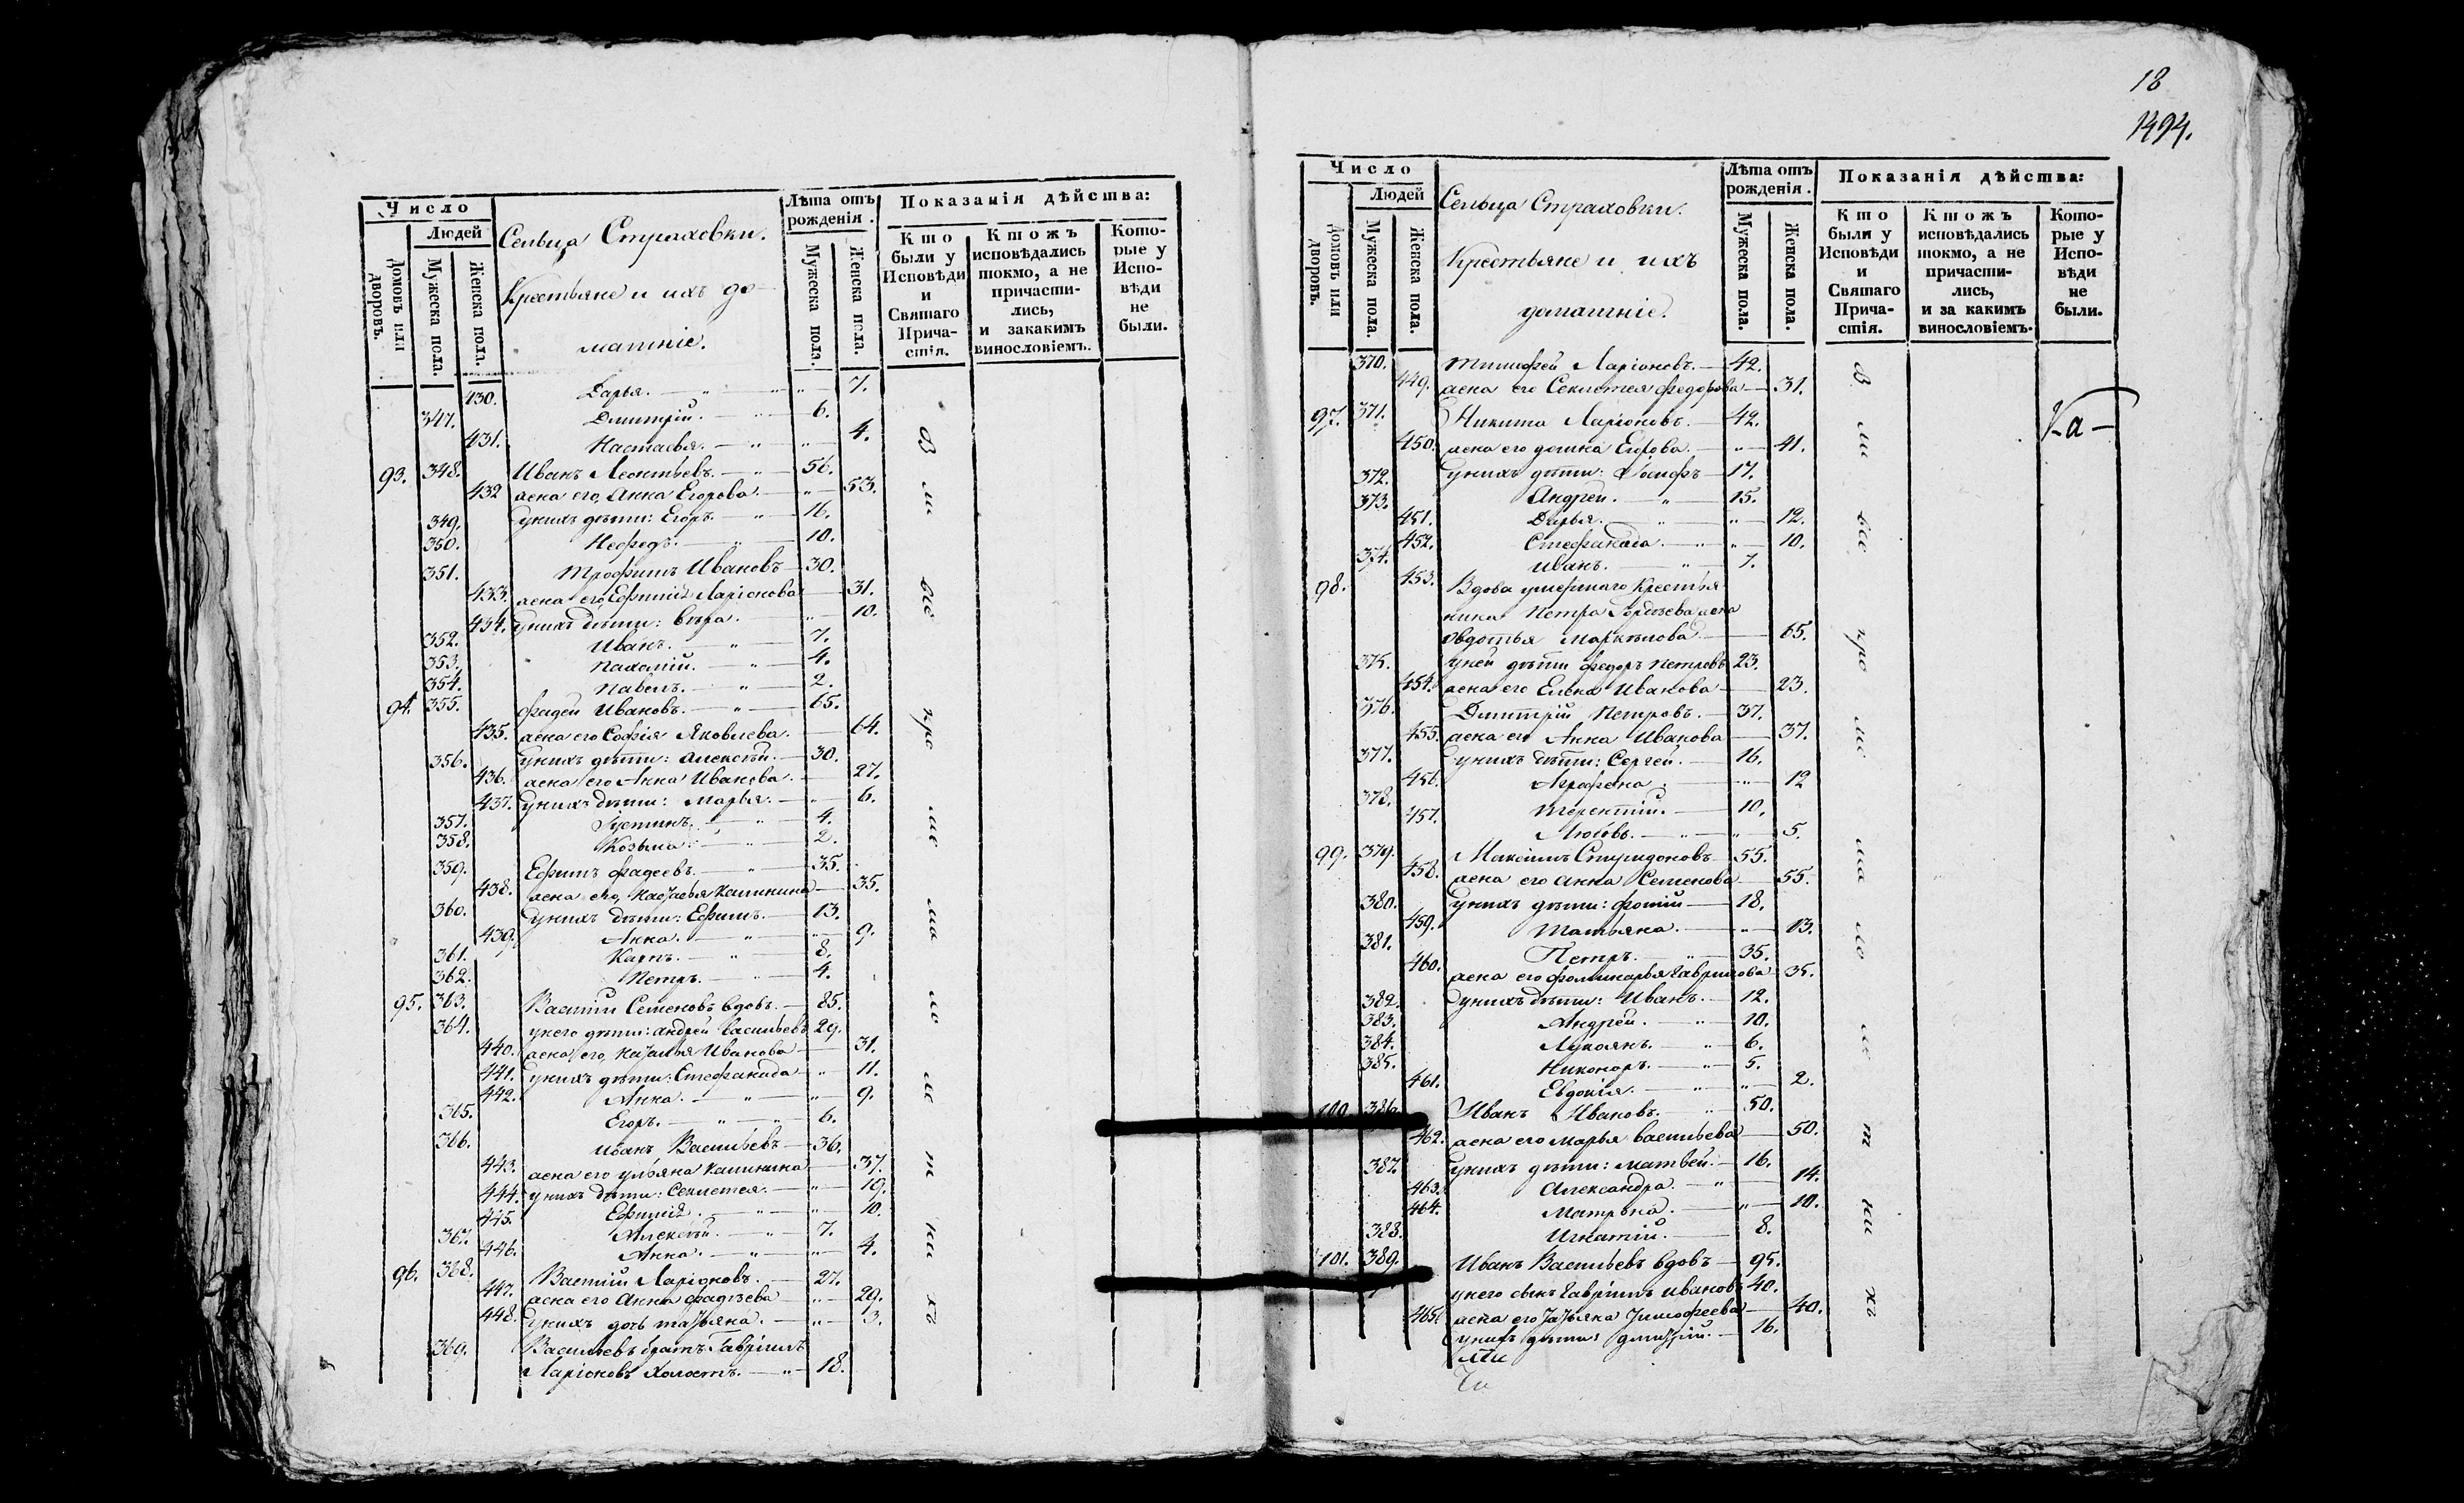 Число
Людей
Домовъ или дворовъ.
Мужеска пола.
Женска пола.
Сельца Страховки.
Крестьяне и ихъ до-
машніе.
Лѣта отъ рожденія.
Мужеска пола.
Женска пола.
Показанія дѣйства:
Кто были у Исповѣди и Святаго Прича-стія.
Ктожъ исповѣдались токмо, а не причасти-лись, и закакимъ винословіемъ.
Кото-рые у Испо-вѣди не были.
430. Дарья. — „ — „ — 7.
347. Дмитрій. — „ — 6.
431. Настасья. — „ — „ — 4.
93. 348. Иванъ Леонтьевъ. — „ — 56.
432 жена его, Анна Егорова. — „ — 53.
349. у нихъ дѣти: Егоръ. — „ — 16.
350. Нефедъ. — „ — 10.
351. Трофимъ Ивановъ — 30.
433. жена его Ефимія Ларіонова — 31.
434. у нихъ дѣти: Вѣра. — „ — 10.
352. Иванъ. — „ — 7.
353. Пахомій. — „ — 4.
354. Павелъ. — „ — 2.
94. 355. Фадей Ивановъ. — „ — 65.
435. жена его Софія Яковлева. — 64.
356. у нихъ дѣти: Алексѣй. — 30.
436. жена его Анна Иванова. — 27.
437. у нихъ дѣти: Марья. — „ — 6.
357. Іустинъ. — „ — 4.
358. Козьма. — „ — 2.
359. Ефимъ Фадеевъ. — „ — 35.
438. жена его, Настасья Калинина — 35.
360. у нихъ дѣти: Ефимъ. — 13.
439. Анна. — „ — „ — 9.
361. Карпъ. — „ — 8.
362. Петръ. — „ — 4.
95. 363. Василій Семеновъ вдовъ. — 85.
364. у него дѣти: Андрей Васильевъ 29.
440. жена его, Наталья Иванова — 31.
441. у нихъ дѣти: Стефанида — „ 11.
442. Анна. — „ — „ — 9.
365. Егоръ. — „ — „ — 6.
366. Иванъ Васильевъ — 36.
443. жена его Ульяна Калинина — 37.
444. у нихъ дѣти: Секлетея. — „ — 19.
445. Ефимія. — „ — „ — 10.
367. Алексѣй. — „ — 7.
446. Анна. — „ — „ — 4.
96. 368. Василій Ларіоновъ. — 27.
447. жена его Анна Фадѣева — „ — 29.
448. у нихъ дочь Татьяна. — „ — 3.
369. Васильевъ братъ Гавріилъ
Ларіоновъ холостъ. — „ — 18.
В
сѣ
18
1494.
Число
Людей
Домовъ или дворовъ.
Мужеска пола.
Женска пола.
Сельца Страховки.
Крестьяне и ихъ
домашніе.
Лѣта отъ рожденія.
Мужеска пола.
Женска пола.
Показанія дѣйства:
Кто были у Исповѣди и Святаго Прича-стія.
Ктожъ исповѣдались токмо, а не причасти-лись, и за какимъ винословіемъ.
Кото-рые у Испо-вѣди не были.
370. Тимофей Ларіоновъ. — 42.
449. жена его Секлетея Федорова — 31.
97. 371. Никита Ларіоновъ. — 42.
450. жена его Домна Егорова. — „ — 41.
372. у нихъ дѣти: Іосифъ — 17.
373. Андрей. — „ — 15.
451. Дарья. — „ — „ — 12.
452. Стефанида. — „ — „ — 10.
374. Иванъ. — „ — 7.
98. 453. Вдова умершаго крестья
нина Петра Гордѣева жена
Овдотья Маркелова. — 65.
375. у ней дѣти Федоръ Петровъ 23.
454. жена его Елена Иванова — 23.
376. Дмитрій Петровъ. — 37.
455. жена его Анна Иванова — 37.
377. у нихъ дѣти: Сергей. — 16.
456. Агрофена. — „ — 12
378. Терентій. — 10.
457. Любовь. — „ — „ — 5.
99. 379. Максимъ Спиридоновъ — 55.
458. жена его Анна Семенова — 55.
380. у нихъ дѣти: Фотій — 18.
459. Татьяна. — „ — 13.
381. Петръ. — „ — 35.
460. жена его Фолинарья Гаврилова 35.
382. у нихъ дѣти: Иванъ. — 12.
383. Андрей. — „ — 10.
384. Лукоянъ. — „ — 6.
385. Никоноръ. — „ — 5.
461. Евдокія. — „ — „ — 2.
100. 386. Иванъ Ивановъ. — „ — 50.
462. жена его Марья Васильева — 50.
387. у нихъ дѣти: Матвей. — 16.
463. Александра. — „ — 14.
464. Матрона. — „ — 10.
388. Игнатій. — 8.
101. 389. Иванъ Васильевъ вдовъ — 95.
у него сынъ Гавріилъ Ивановъ 40.
465. жена его Татьяна Тимофеева — 40.
у нихъ дѣти: Дмитрій. — 16.